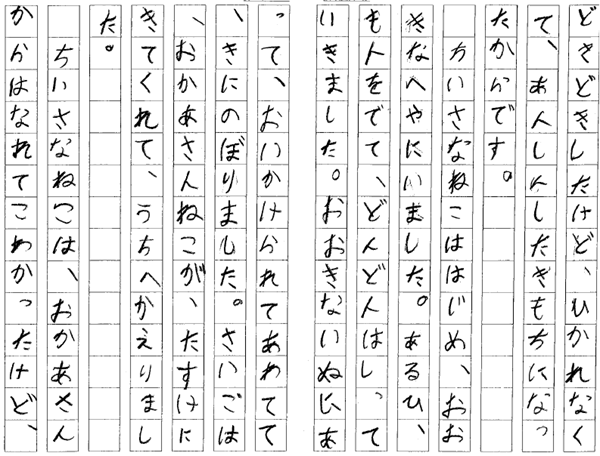 どきどきしたけど、ひかれなく
て、あんしんしたきもちになっ
たからです。
ちいさなねこははじめ、おお
きなへやにいました。あるひ、
もんをでて、どんどんはしって
いきました。おおきないぬにあ
って、おいかけられてあわてて
、きにのぼりました。さいごは
、おかあさんねこが、たすけに
きてくれて、うちへかえりまし
た。
ちいさなねこは、おかあさん
からはなれてこわかったけど、